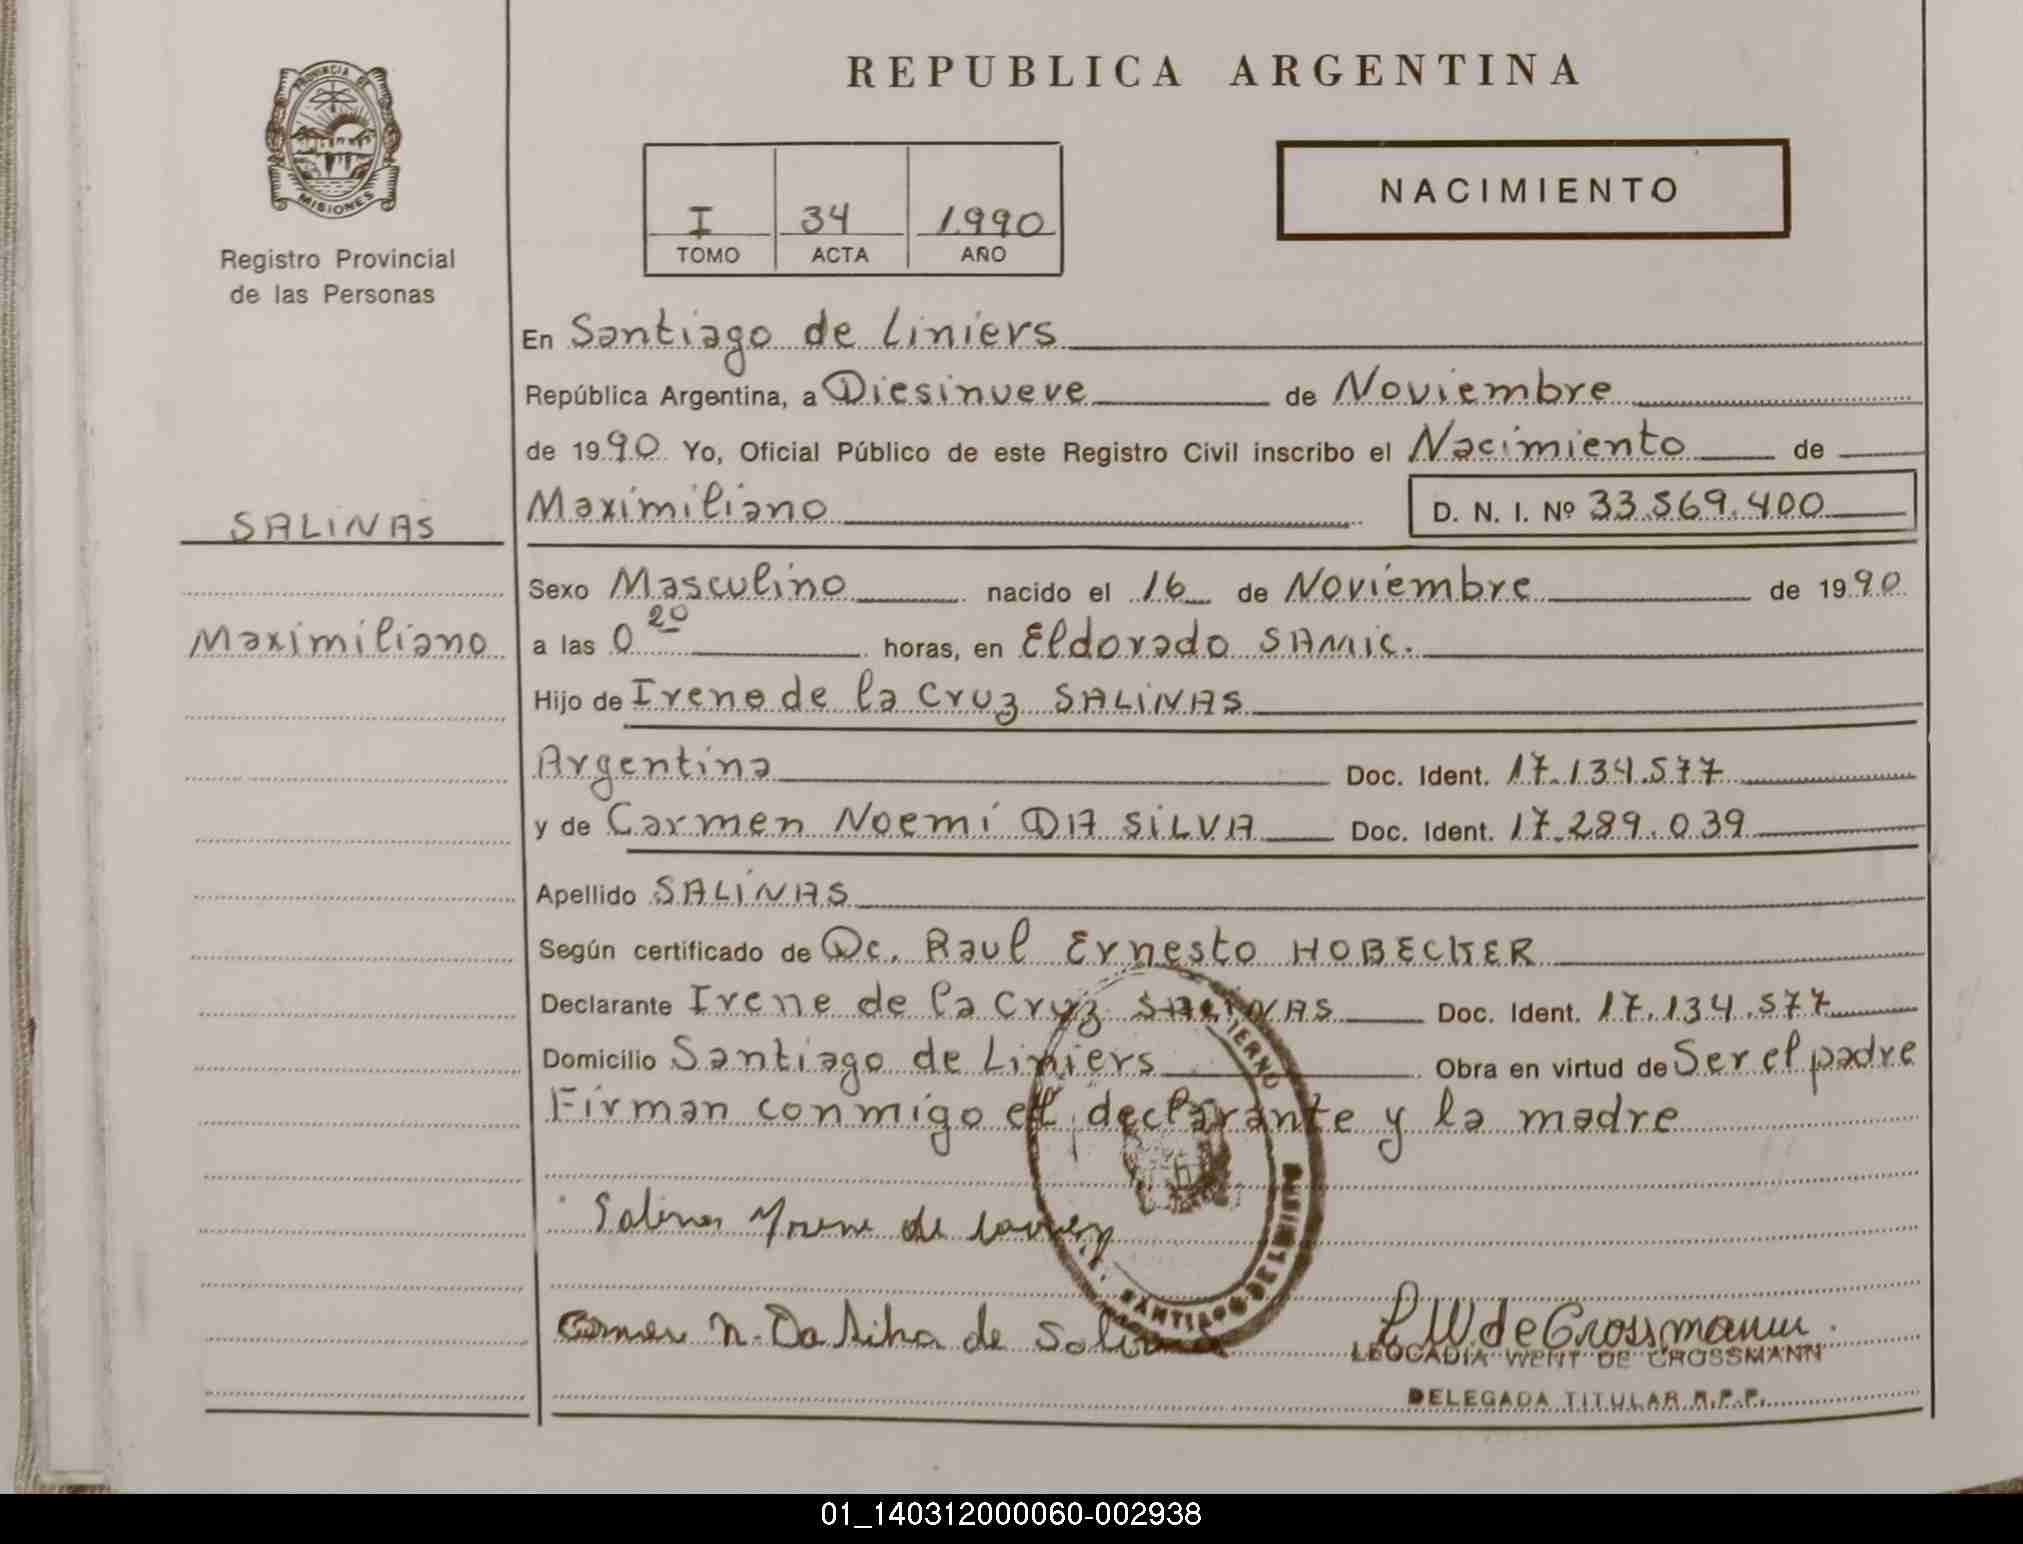 PROVINCIA DE
MISIONES
Registro Provincial
de las Personas
REPUBLICA ARGENTINA
I 34 1.990
TOMO ACTA AÑO
NACIMIENTO
En Santiago de Liniers
República Argentina, a Diesinueve de Noviembre
de 1990 Yo, Oficial Público de este Registro Civil inscribo el Nacimiento de
SALINAS
Maximiliano
Maximiliano D. N. I. Nº 33.569.400
Sexo Masculino nacido el 16 de Noviembre de 1990
a las 0 20 horas, en Eldorado SAMIC.
Hijo de Irene de la Cruz SALINAS
Argentina Doc. Ident. 17.134.577
y de Carmen Noemí DA SILVA Doc. Ident. 17.289.039
Apellido SALINAS
Según certificado de Dc. Raul Ernesto HOBECKER
Declarante Irene de la Cruz SALINAS Doc. Ident. 17.134.577
Domicilio Santiago de Liniers Obra en virtud de Ser el padre
Firman conmigo el declarante y la madre
Salinas Yrene de
Carmen N. Da Silva de Salinas
L W de Grossmann
LEOCADIA WENT DE GROSSMANN
DELEGADA TITULAR R.P.P.
SANTIAGO DE
01_140312000060-002938